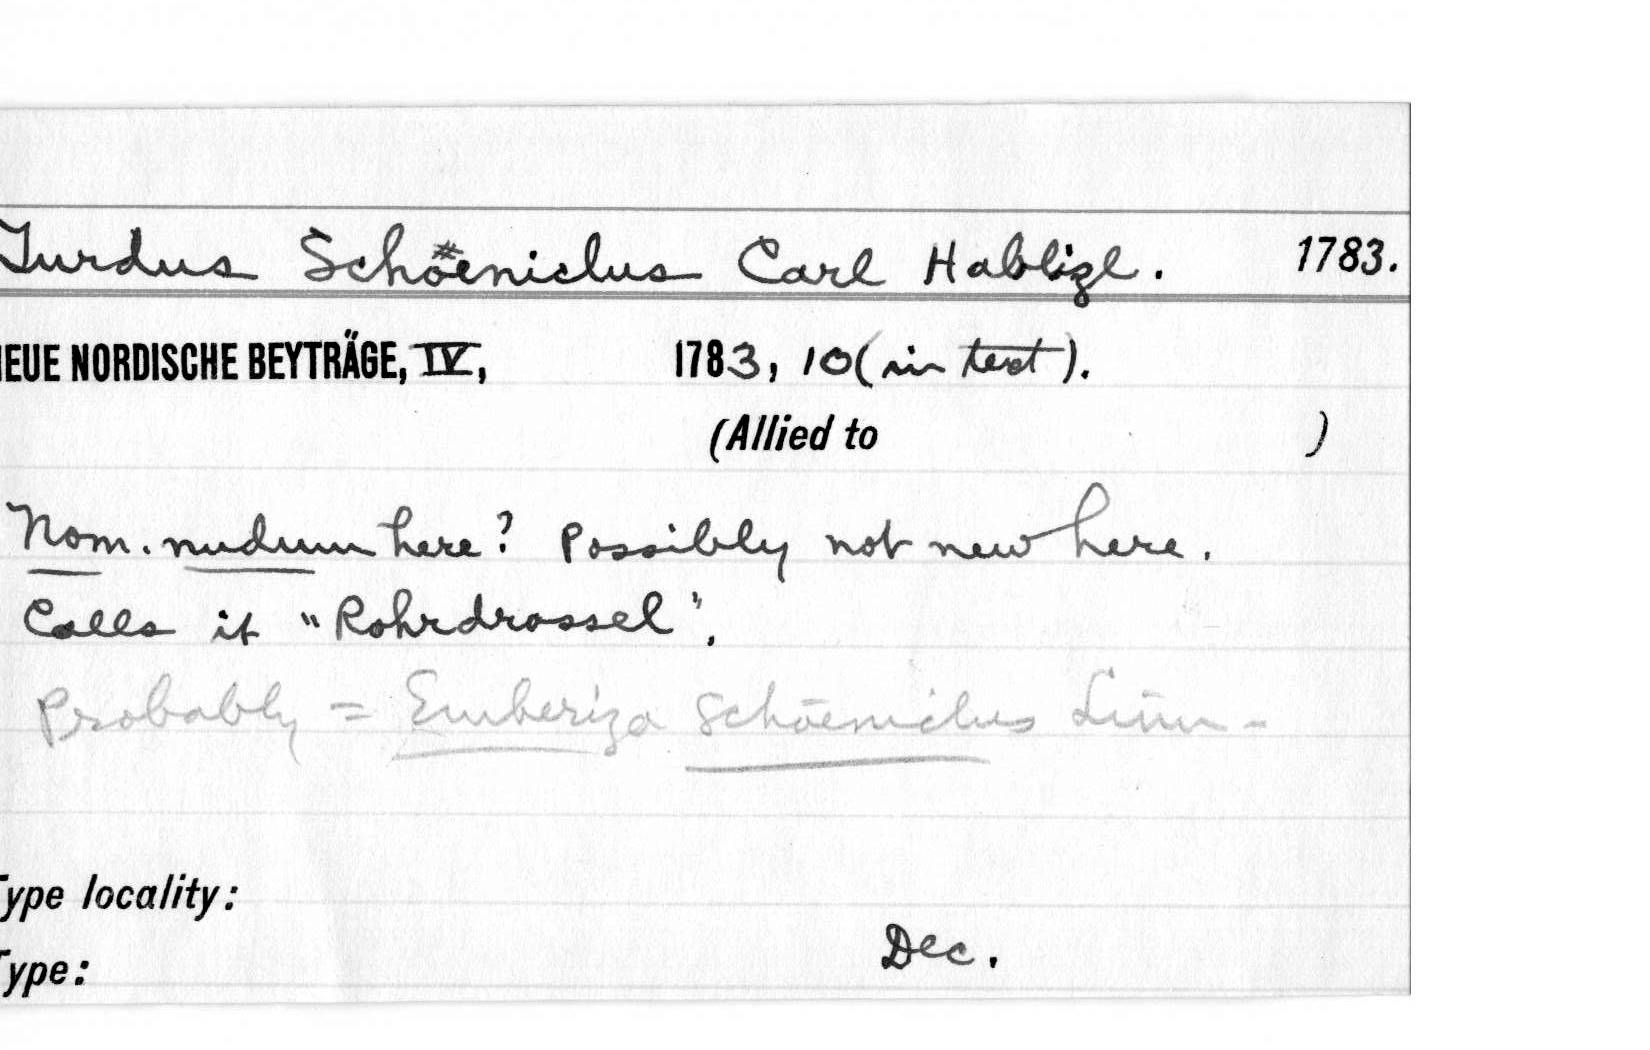 Turdus Schöeniclus Carl Hablizl. 1783.
NEUE NORDISCHE BEYTRÄGE, IV, 1783, 10 (in text).
(Allied to )
Nom. nudum here? Possibly not new here.
Calls it "Rohrdrossel".
Probably = Emberiza Schöeniclus Linn-
Type locality:
Dec.
Type: